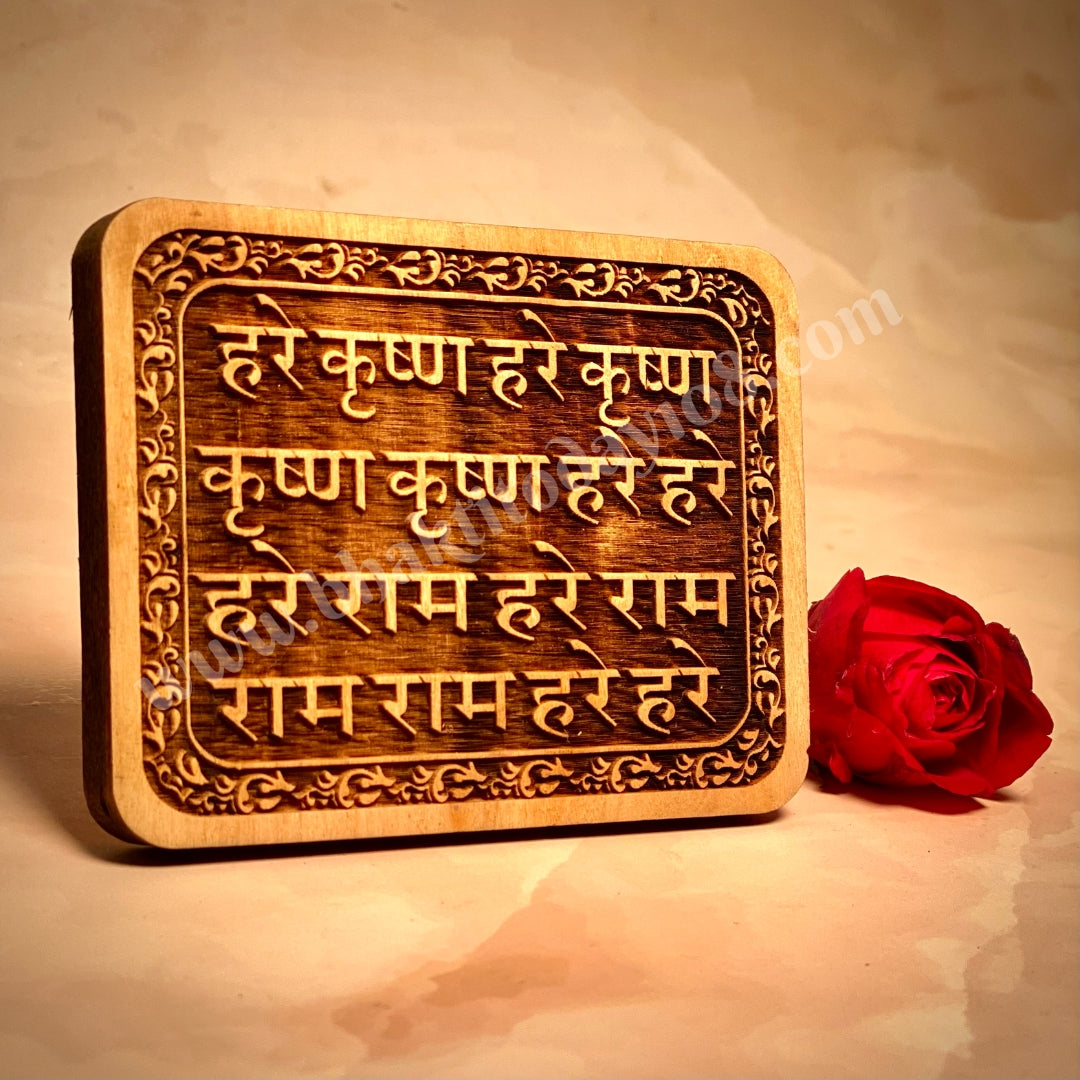 हरे कृष्ण हरे कृष्ण
कृष्ण कृष्ण हरे हरे
हरे राम हरे राम
राम राम हरे हरे
www.bhaktitoday108.com